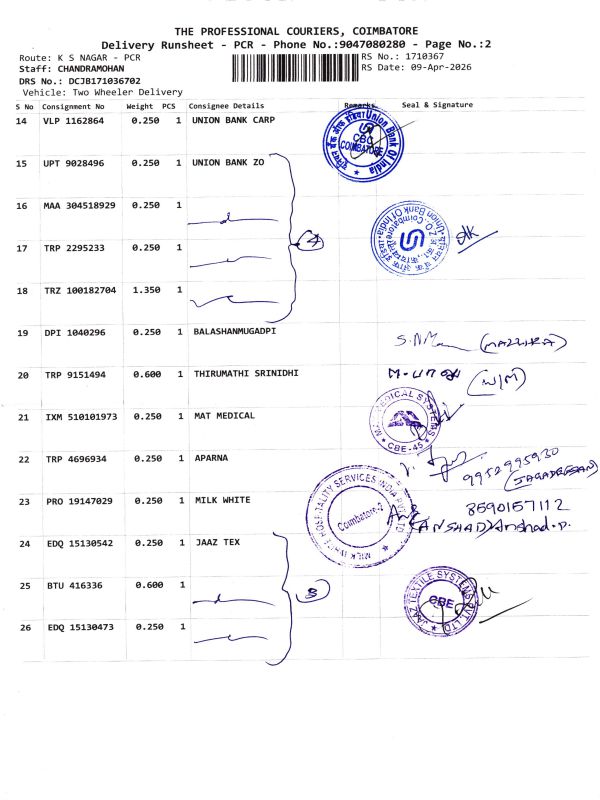 THE PROFESSIONAL COURIERS, COIMBATORE
Delivery Runsheet - PCR - Phone No.:9047080280 - Page No.:2
Route: K S NAGAR - PCR
RS No.: 1710367
Staff: CHANDRAMOHAN
RS Date: 09-Apr-2026
DRS No.: DCJB171036702
Vehicle: Two Wheeler Delivery
S No Consignment No Weight PCS Consignee Details Remarks Seal & Signature
14 VLP 1162864 0.250 1 UNION BANK CARP
Union Bank Of India
CBC
COIMBATORE
15 UPT 9028496 0.250 1 UNION BANK ZO
16 MAA 304518929 0.250 1
Z.O., Coimbatore
Union Bank Of India
17 TRP 2295233 0.250 1
18 TRZ 100182704 1.350 1
19 DPI 1040296 0.250 1 BALASHANMUGADPI
20 TRP 9151494 0.600 1 THIRUMATHI SRINIDHI
(W/M)
21 IXM 510101973 0.250 1 MAT MEDICAL
MEDICAL SYSTEMS
CBE-45
22 TRP 4696934 0.250 1 APARNA
9952995930
(JAGADEESAN)
23 PRO 19147029 0.250 1 MILK WHITE
MILK WHITE HOSPITALITY SERVICES INDIA PVT LTD
Coimbatore-2
8590157112
(ANSHAD) Anshad.P.
24 EDQ 15130542 0.250 1 JAAZ TEX
25 BTU 416336 0.600 1
3
JAAZ TEXTILE SYSTEMS PVT LTD
CBE
26 EDQ 15130473 0.250 1